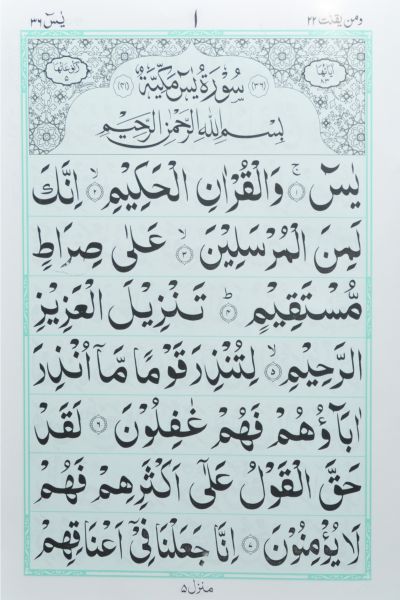 ومن یقنت ٢٢
١
یٰسٓ ٣٦
(٣٦) سُوْرَةُ یٰسٓ مَکِّیَّةٌ (٤١)
بِسْمِ اللّٰهِ الرَّحْمٰنِ الرَّحِیْمِ
یٰسٓ ۚ ﴿١﴾ وَالْقُرْاٰنِ الْحَکِیْمِ ۙ ﴿٢﴾ اِنَّكَ
لَمِنَ الْمُرْسَلِیْنَ ۙ ﴿٣﴾ عَلٰی صِرَاطٍ
مُّسْتَقِیْمٍ ؕ ﴿٤﴾ تَنْزِیْلَ الْعَزِیْزِ
الرَّحِیْمِ ۙ ﴿٥﴾ لِتُنْذِرَ قَوْمًا مَّاۤ اُنْذِرَ
اٰبَآؤُهُمْ فَهُمْ غٰفِلُوْنَ ﴿٦﴾ لَقَدْ
حَقَّ الْقَوْلُ عَلٰۤی اَکْثَرِهِمْ فَهُمْ
لَا یُؤْمِنُوْنَ ﴿٧﴾ اِنَّا جَعَلْنَا فِیْۤ اَعْنَاقِهِمْ
منزل ٥